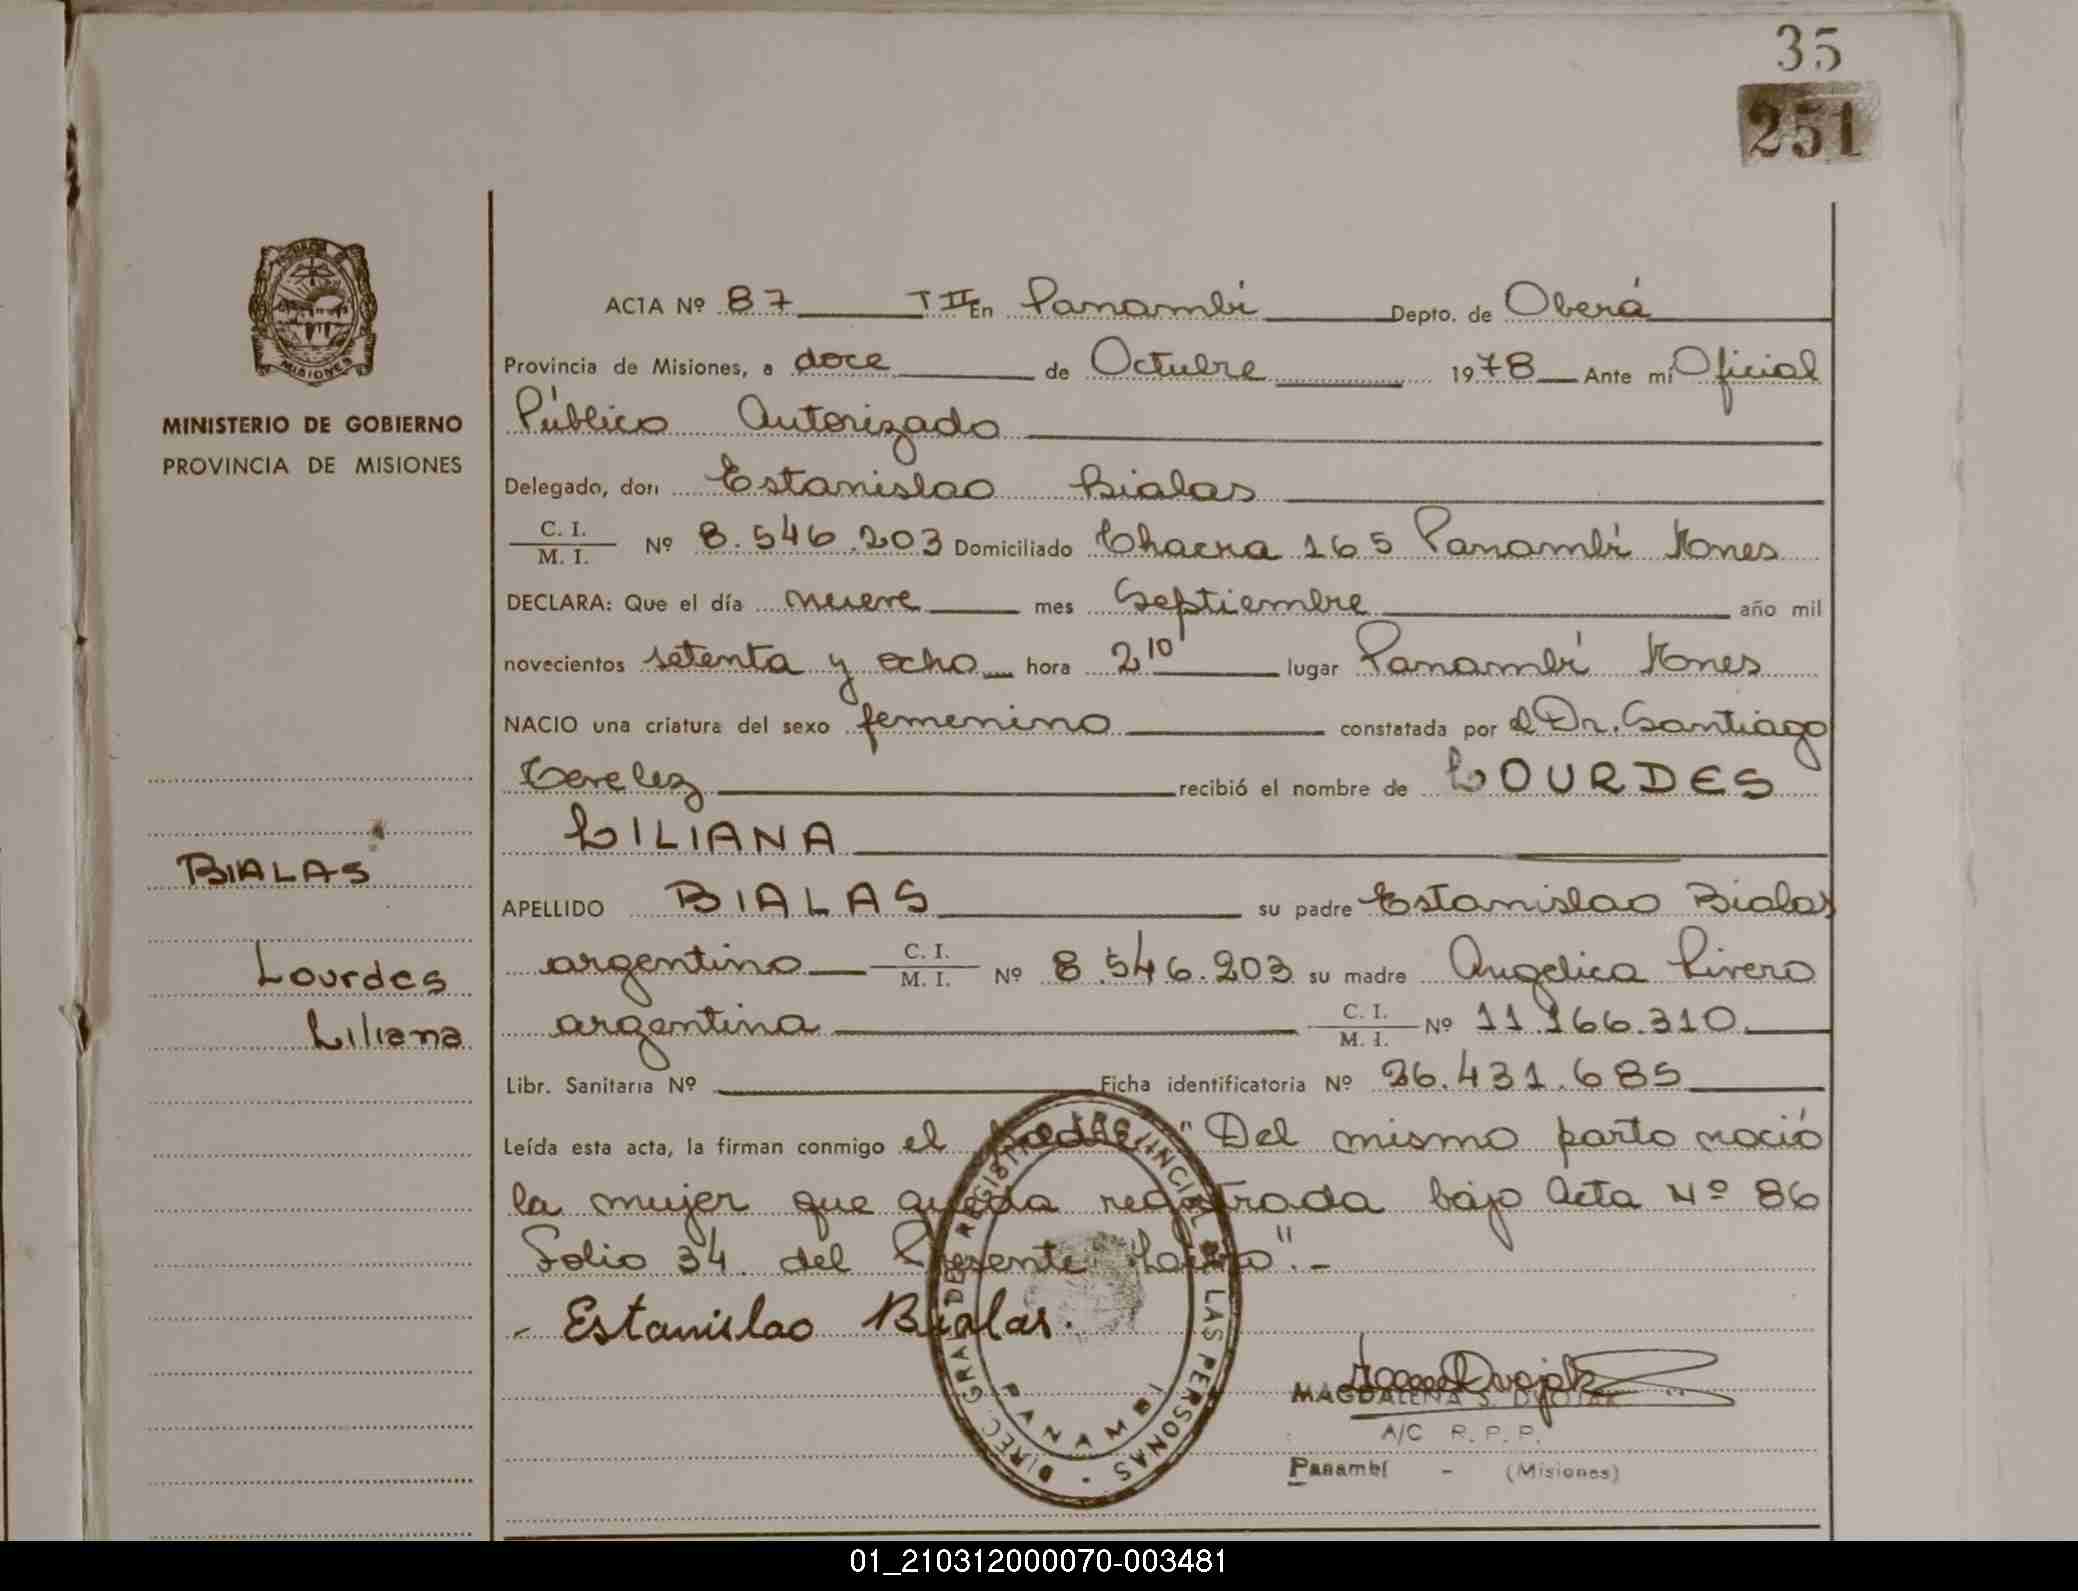 35
251
MINISTERIO DE GOBIERNO
PROVINCIA DE MISIONES
BIALAS
Lourdes
Liliana
ACTA Nº 87 T II En Panambí Depto. de Oberá
Provincia de Misiones, a doce de Octubre 1978 Ante mí Oficial
Público Autorizado
Delegado, don Estanislao Bialas
C. I.
M. I. Nº 8.546.203 Domiciliado Chacra 165 Panambí Mnes
DECLARA: Que el día nueve mes Septiembre año mil
novecientos setenta y ocho hora 2 10 lugar Panambí Mnes
NACIO una criatura del sexo femenino constatada por el Dr. Santiago
recibió el nombre de LOURDES
LILIANA
APELLIDO BIALAS su padre Estanislao Bialas
argentino C. I. M. I. Nº 8.546.203 su madre Angelica Rivero
argentina C. I. M. I. Nº 11.166.310
Libr. Sanitaria Nº Ficha identificatoria Nº 26.431.685
Leída esta acta, la firman conmigo el padre. "Del mismo parto nació
la mujer que queda registrada bajo Acta Nº 86
Folio 34 del Presente Libro".-
- Estanislao Bialas.
DIREC. GRAL. DEL REGISTRO PROVINCIAL DE LAS PERSONAS
PANAMBI
MAGDALENA S. DVOJAK
A/C R. P. P.
Panambí - (Misiones)
01_210312000070-003481